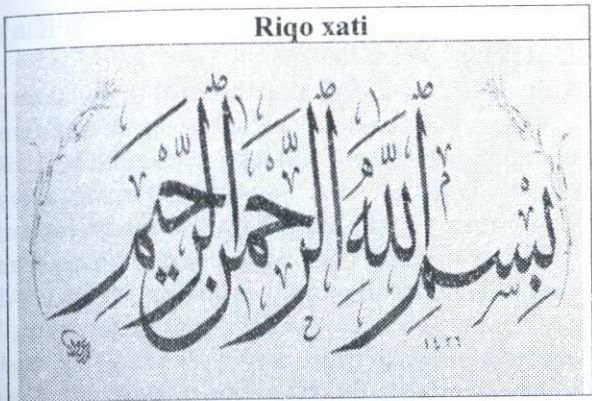 Riqo xati
بِسْمِ اللَّهِ الرَّحْمٰنِ الرَّحِيْمِ